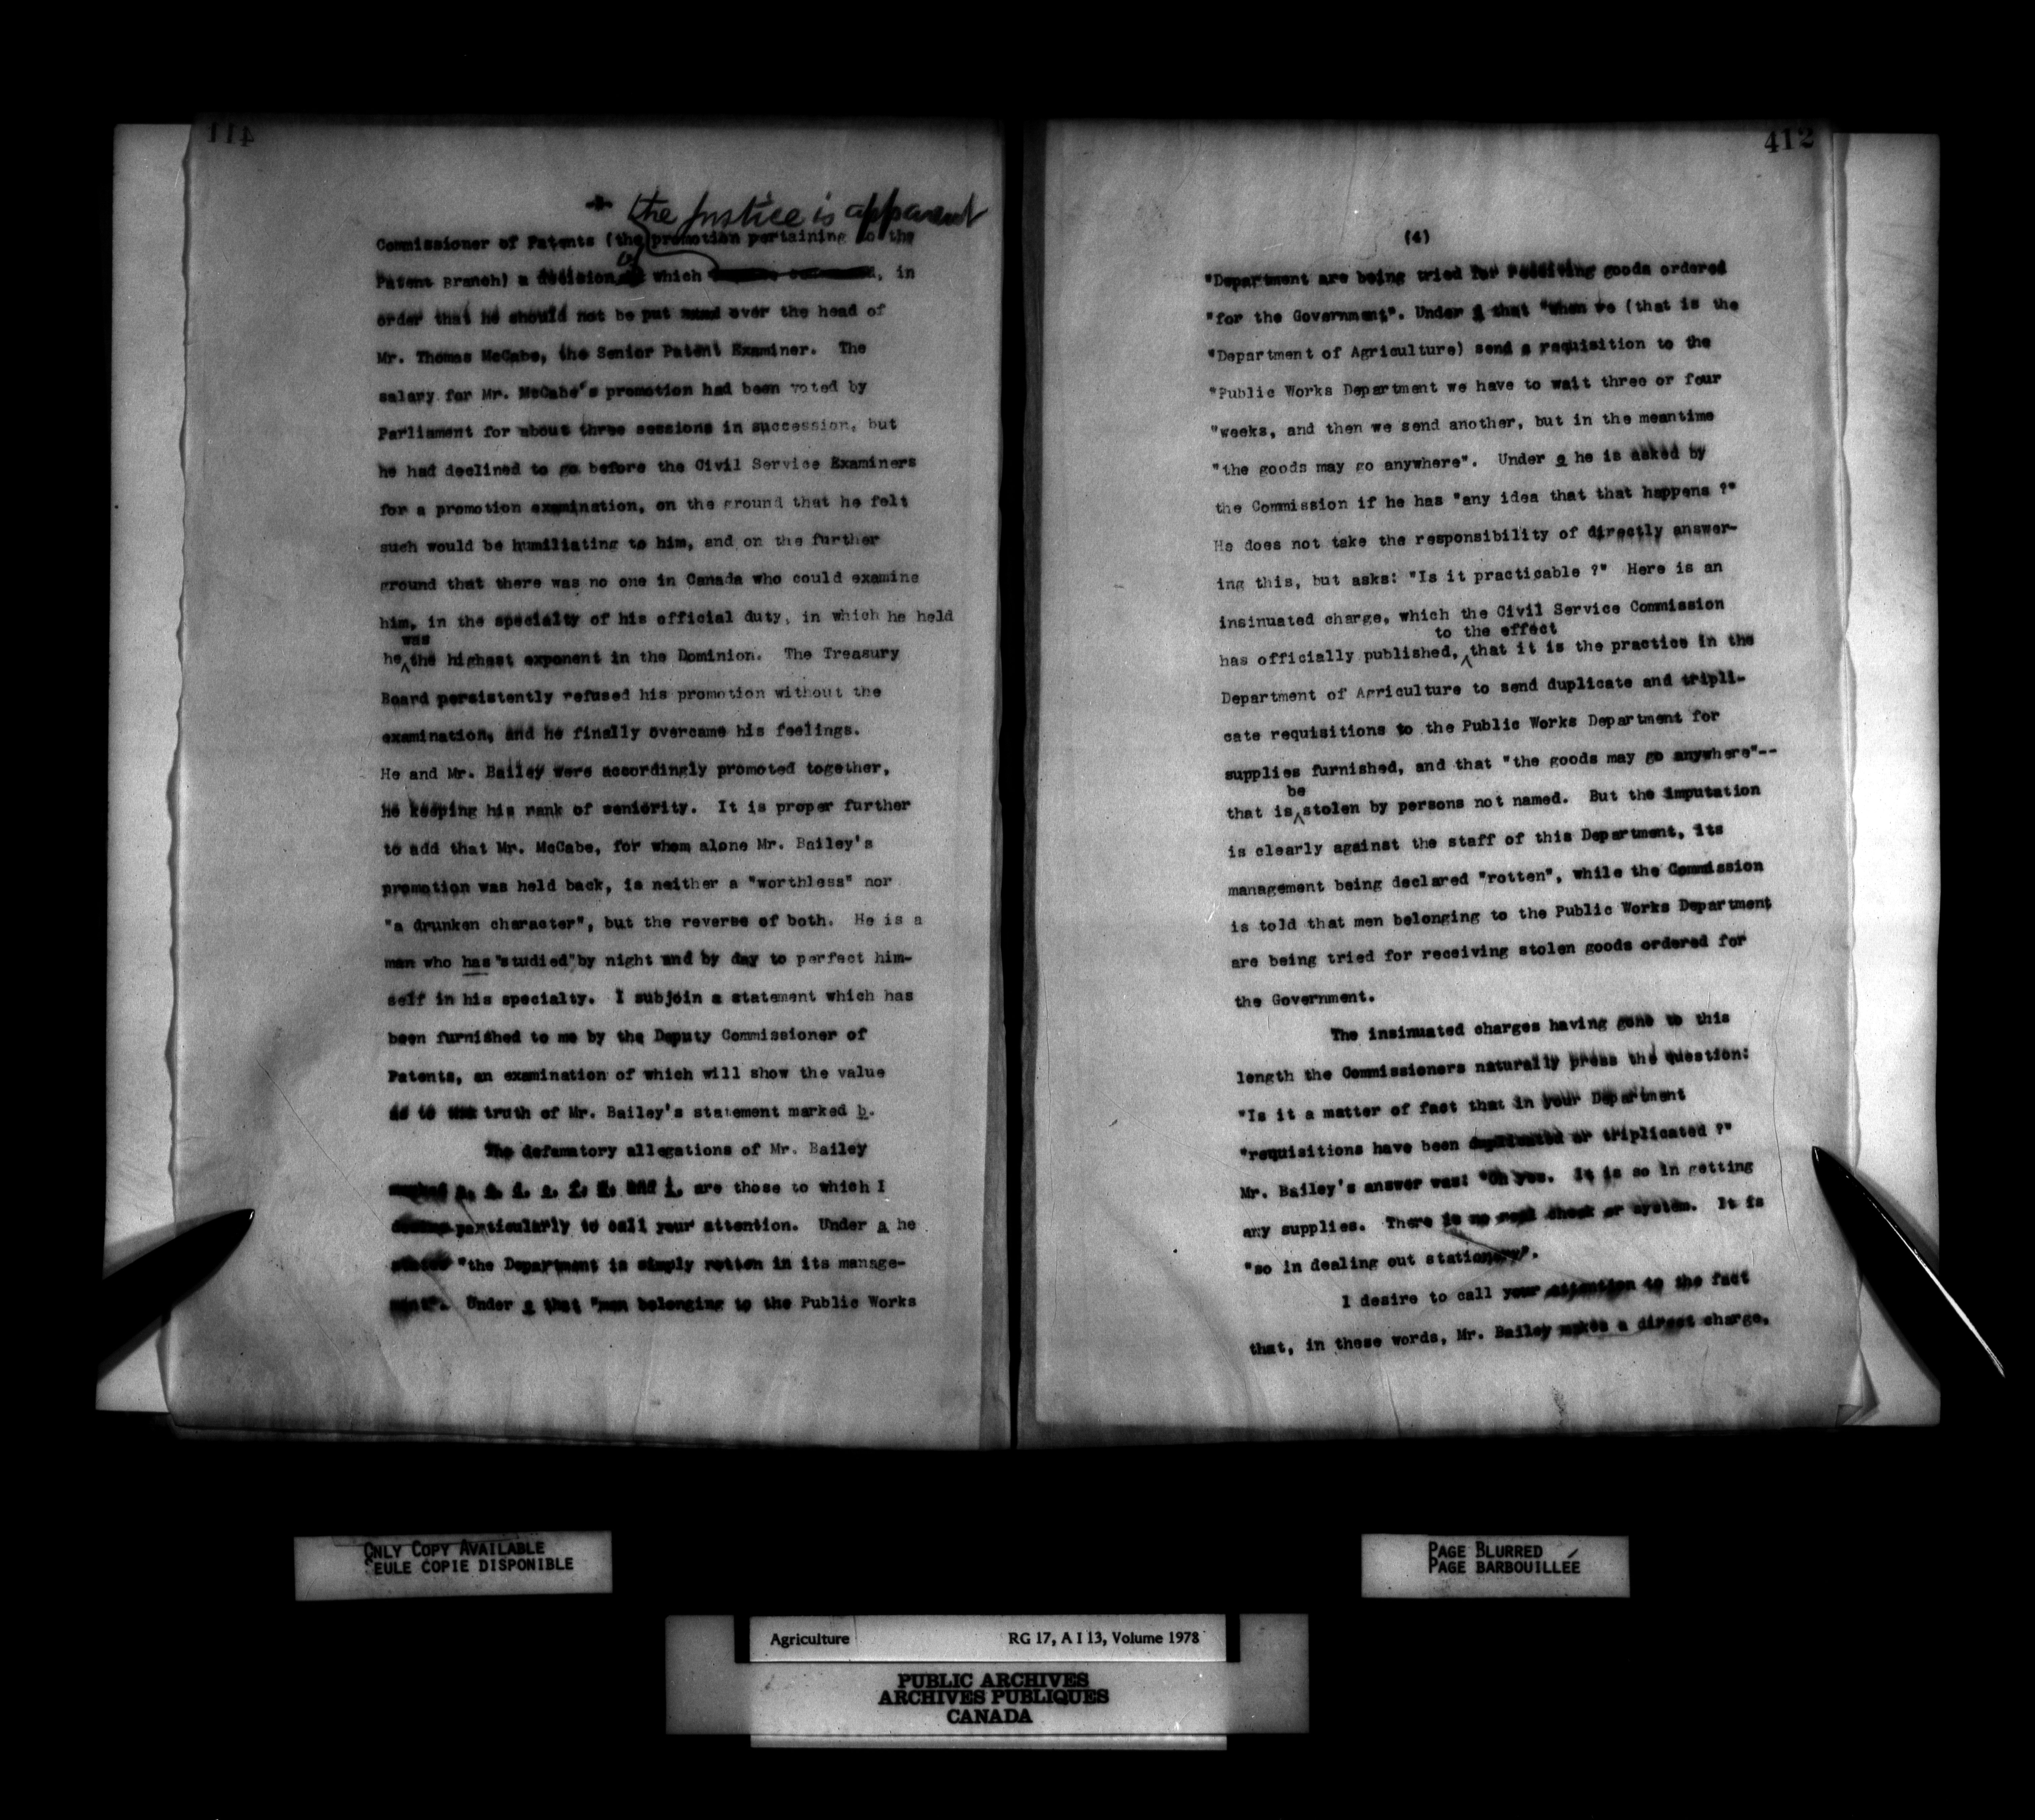 411
the Justice is apparent
Commissioner of Patents (the promotion pertaining to the
Patent Branch) a decision of which , in
order that he should not be put over the head of
Mr. Thomas McCabe, the Senior Patent Examiner. The
salary for Mr. McCabe's promotion had been voted by
Parliament for about three sessions in succession, but
he had declined to go before the Civil Service Examiners
for a promotion examination, on the ground that he felt
such would be humiliating to him, and on the further
ground that there was no one in Canada who could examine
him, in the specialty of his official duty, in which he held
was
he the highest exponent in the Dominion. The Treasury
Board persistently refused his promotion without the
examination, and he finally overcame his feelings.
He and Mr. Bailey were accordingly promoted together,
he keeping his rank of seniority. It is proper further
to add that Mr. McCabe, for whom alone Mr. Bailey's
promotion was held back, is neither a "worthless" nor
"a drunken character", but the reverse of both. He is a
man who has "studied" by night and by day to perfect him-
self in his specialty. I subjoin a statement which has
been furnished to me by the Deputy Commissioner of
Patents, an examination of which will show the value
as to the truth of Mr. Bailey's statement marked b.
The defamatory allegations of Mr. Bailey
and i. are those to which I
particularly to call your attention. Under a he
"the Department is simply rotten in its manage-
ment". Under c that "men belonging to the Public Works
412
(4)
"Department are being tried for receiving goods ordered
"for the Government". Under d that "when we (that is the
"Department of Agriculture) send a requisition to the
"Public Works Department we have to wait three or four
"weeks, and then we send another, but in the meantime
"the goods may go anywhere". Under e he is asked by
the Commission if he has "any idea that that happens ?"
He does not take the responsibility of directly answer-
ing this, but asks: "Is it practicable ?" Here is an
insinuated charge, which the Civil Service Commission
to the effect
has officially published, that it is the practice in the
Department of Agriculture to send duplicate and tripli-
cate requisitions to the Public Works Department for
supplies furnished, and that "the goods may go anywhere"--
be
that is stolen by persons not named. But the imputation
is clearly against the staff of this Department, its
management being declared "rotten", while the Commission
is told that men belonging to the Public Works Department
are being tried for receiving stolen goods ordered for
the Government.
The insinuated charges having gone to this
length the Commissioners naturally press the question:
"Is it a matter of fact that in your Department
"requisitions have been duplicated or triplicated ?"
Mr. Bailey's answer was: "Oh yes. It is so in getting
any supplies. There is no real check or system. It is
"so in dealing out stationery".
I desire to call your attention to the fact
that, in these words, Mr. Bailey makes a direct charge,
ONLY COPY AVAILABLE
SEULE COPIE DISPONIBLE
PAGE BLURRED
PAGE BARBOUILLÉE
Agriculture RG 17, A I 13, Volume 1978
PUBLIC ARCHIVES
ARCHIVES PUBLIQUES
CANADA